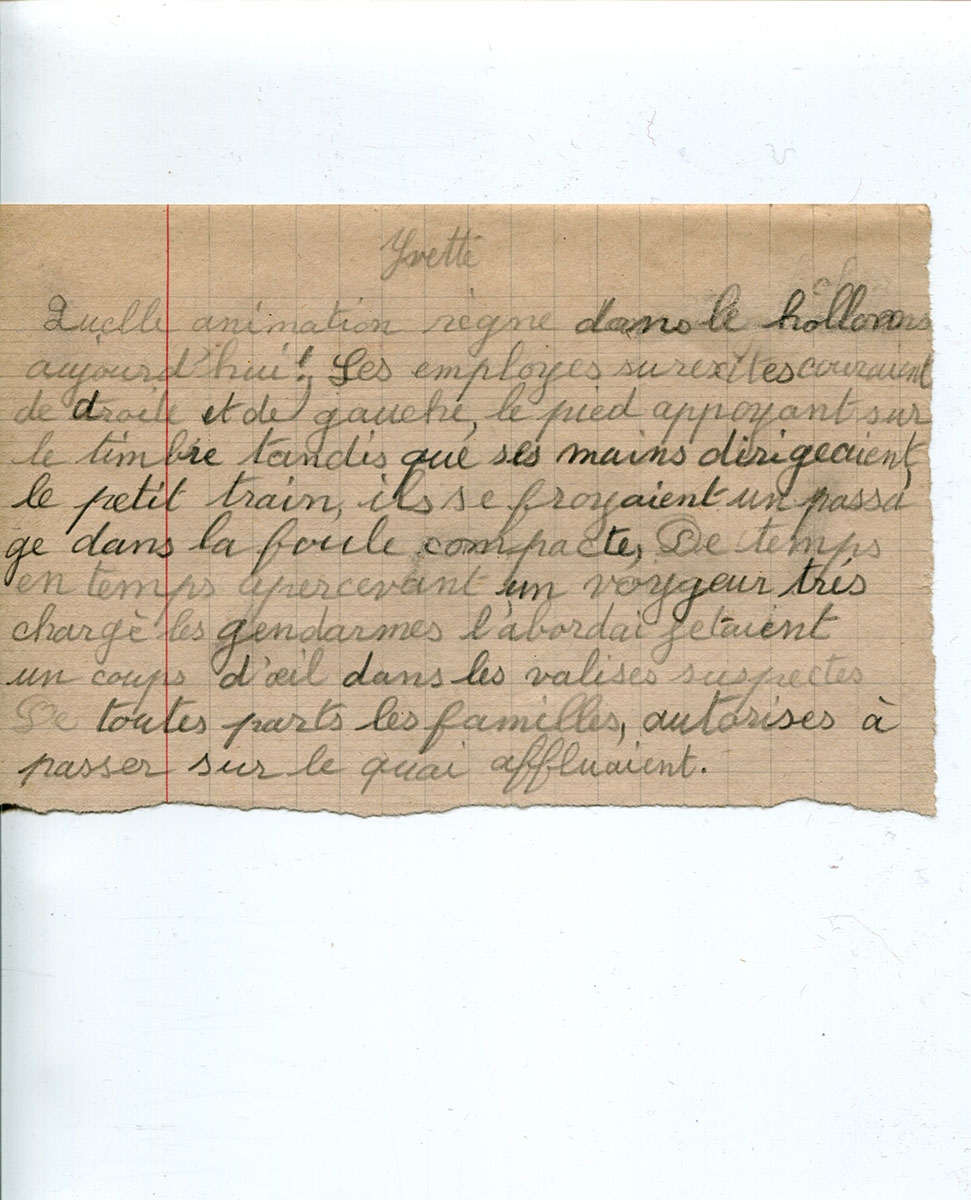 Yvette
Quelle animation règne dans le
aujourd'hui! Les employes surexites couraient
de droite et de gauche, le pied appoyant sur
le timbre tandis que ses mains dirigeaient,
le petit train, ils se froyaient un passa
ge dans la foule compacte, De temps
en temps apercevant un voygeur trés
chargè les gendarmes l'abordai jetaient
un coups d'œil dans les valises suspectes
De toutes parts les familles, autorises à
passer sur le quai affluaient.